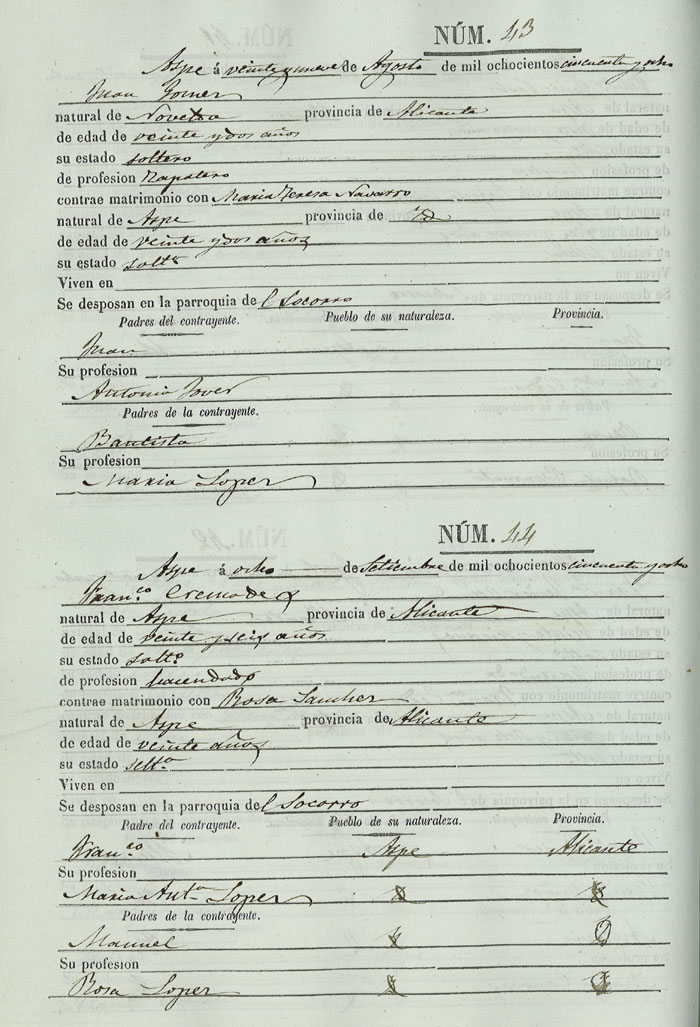 NÚM. 43
Aspe á veinte y nueve de Agosto de mil ochocientos cincuenta y ocho
Juan
natural de Novelda provincia de Alicante
de edad de veinte y dos años
su estado soltero
de profesion Zapatero
contrae matrimonio con Maria Teresa Navarro
natural de Aspe provincia de
de edad de veinte y dos años
su estado soltª
Viven en
Se desposan en la parroquia del Socorro
Padres del contrayente. Pueblo de su naturaleza. Provincia.
Juan
Su profesion
Antonia Jover
Padres de la contrayente.
Bautista
Su profesion
Maria Lopez
NÚM. 44
Aspe á ocho de Setiembre de mil ochocientos cincuenta y ocho
Franco Cremades
natural de Aspe provincia de Alicante
de edad de veinte y seis años
su estado solto
de profesion hacendado
contrae matrimonio con Rosa Sanchez
natural de Aspe provincia de Alicante
de edad de veinte años
su estado soltª
Viven en
Se desposan en la parroquia del Socorro
Padre del contrayente. Pueblo de su naturaleza. Provincia.
Franco Aspe Alicante
Su profesion
Maria Antª Lopez
Padres de la contrayente.
Manuel
Su profesion
Rosa Lopez